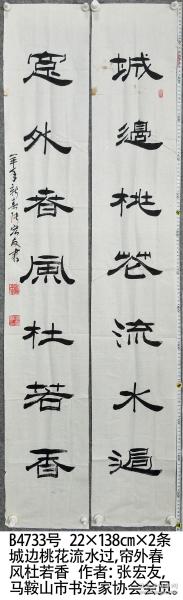 城邊桃花流水過
宻外春風杜若香
辛年新春张宏友書
B4733号 22×138cm×2条
城边桃花流水过,帘外春
风杜若香 作者:张宏友,
马鞍山市书法家协会会员。